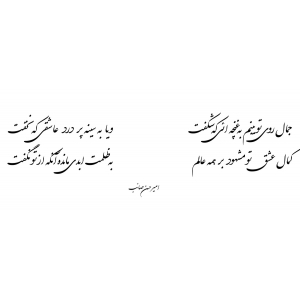 جمال روی تو بینم به غنچه ای که شکفت ویا به سینه پر درد عاشقی که نخفت
کمال عشق تو مشهود بر همه عالم به ظلمت ابدی مانده آنکه از تو نگفت
امیرحسن صائب